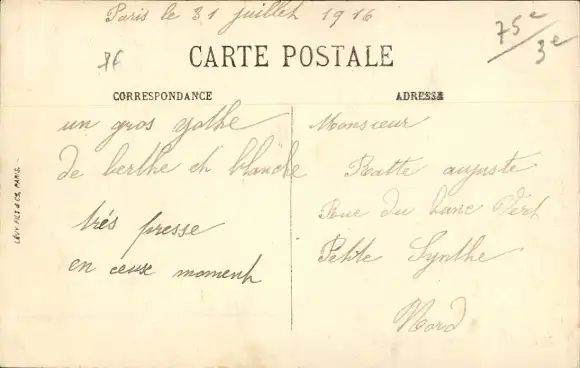 Paris le 31 juillet 1916
75c
3e
CARTE POSTALE
CORRESPONDANCE
ADRESSE
un gros
de berthe et blanche
très presse
en ceuse moment
Monsieur
Ratte auguste
Rue du banc Vert
Petite Synthe
Nord
LÉVY FILS & CIE, PARIS.